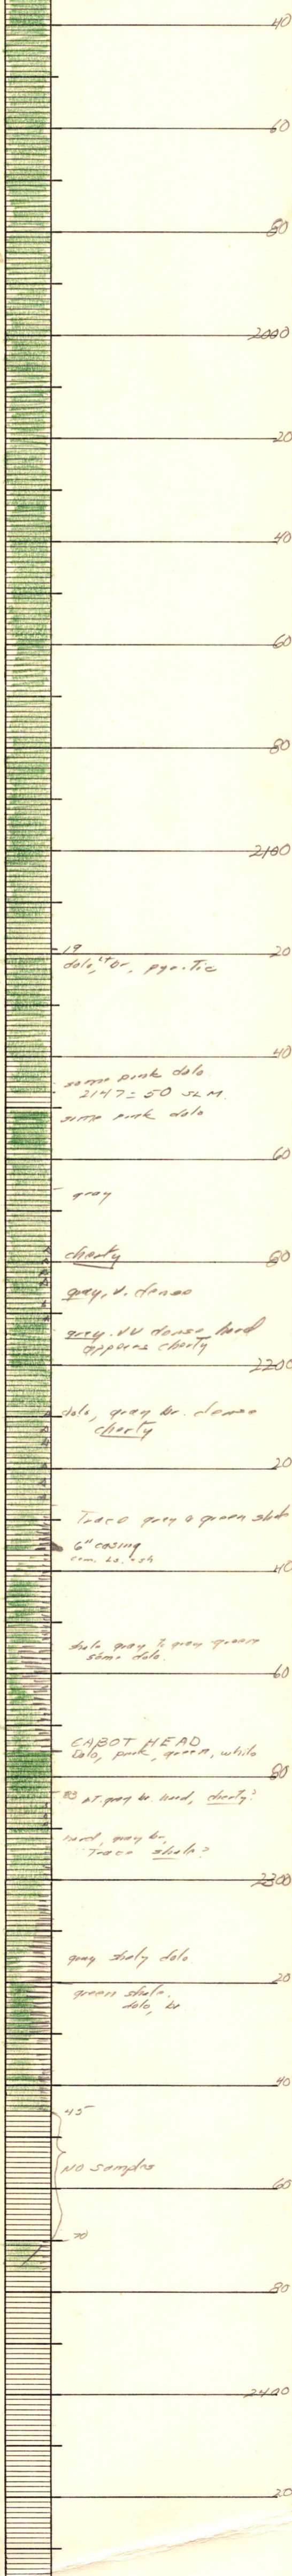 40
60
80
2000
20
40
60
80
2100
19
20
dolo, lt br, pyritic
40
some pink dolo
2147 = 50 SLM
some pink dolo
60
gray
cherty
80
gray, v. dense
gray. VV dense hard
appears cherty
2200
dolo, gray br. dense
cherty
20
Trace gray & green shale
6" casing
40
shale gray to gray green
some dolo.
60
CABOT HEAD
Dolo, pink, green, white
80
83 lt gray br hard, cherty?
hard, gray br,
Trace shale?
2300
gray shaly dolo
20
green shale,
dolo, br
40
45
NO samples
60
70
80
2400
20